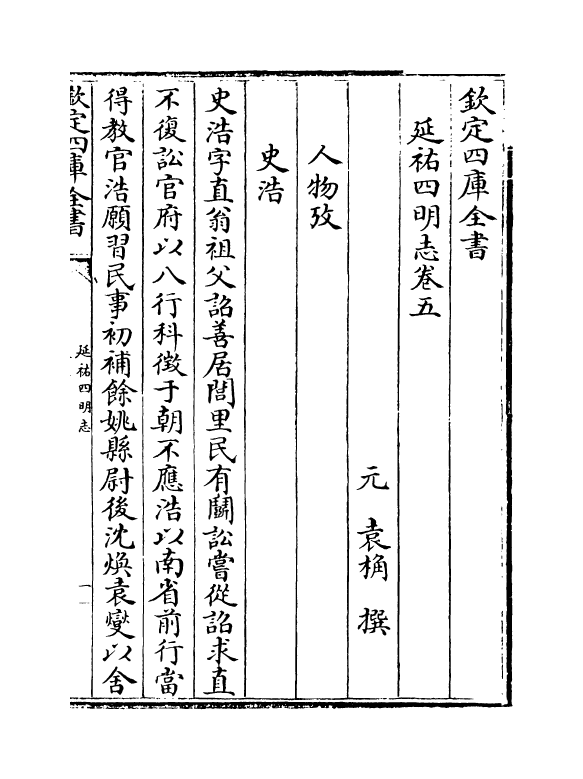 欽定四庫全書
延祐四明志卷五
元 袁桷 撰
人物攷
史浩
史浩字直翁祖父詔善居閭里民有鬭訟嘗從詔求直
不復訟官府以八行科徴于朝不應浩以南省前行當
得教官浩願習民事初補餘姚縣尉後沈煥袁燮以舍
欽定四庫全書
延祐四明志
一